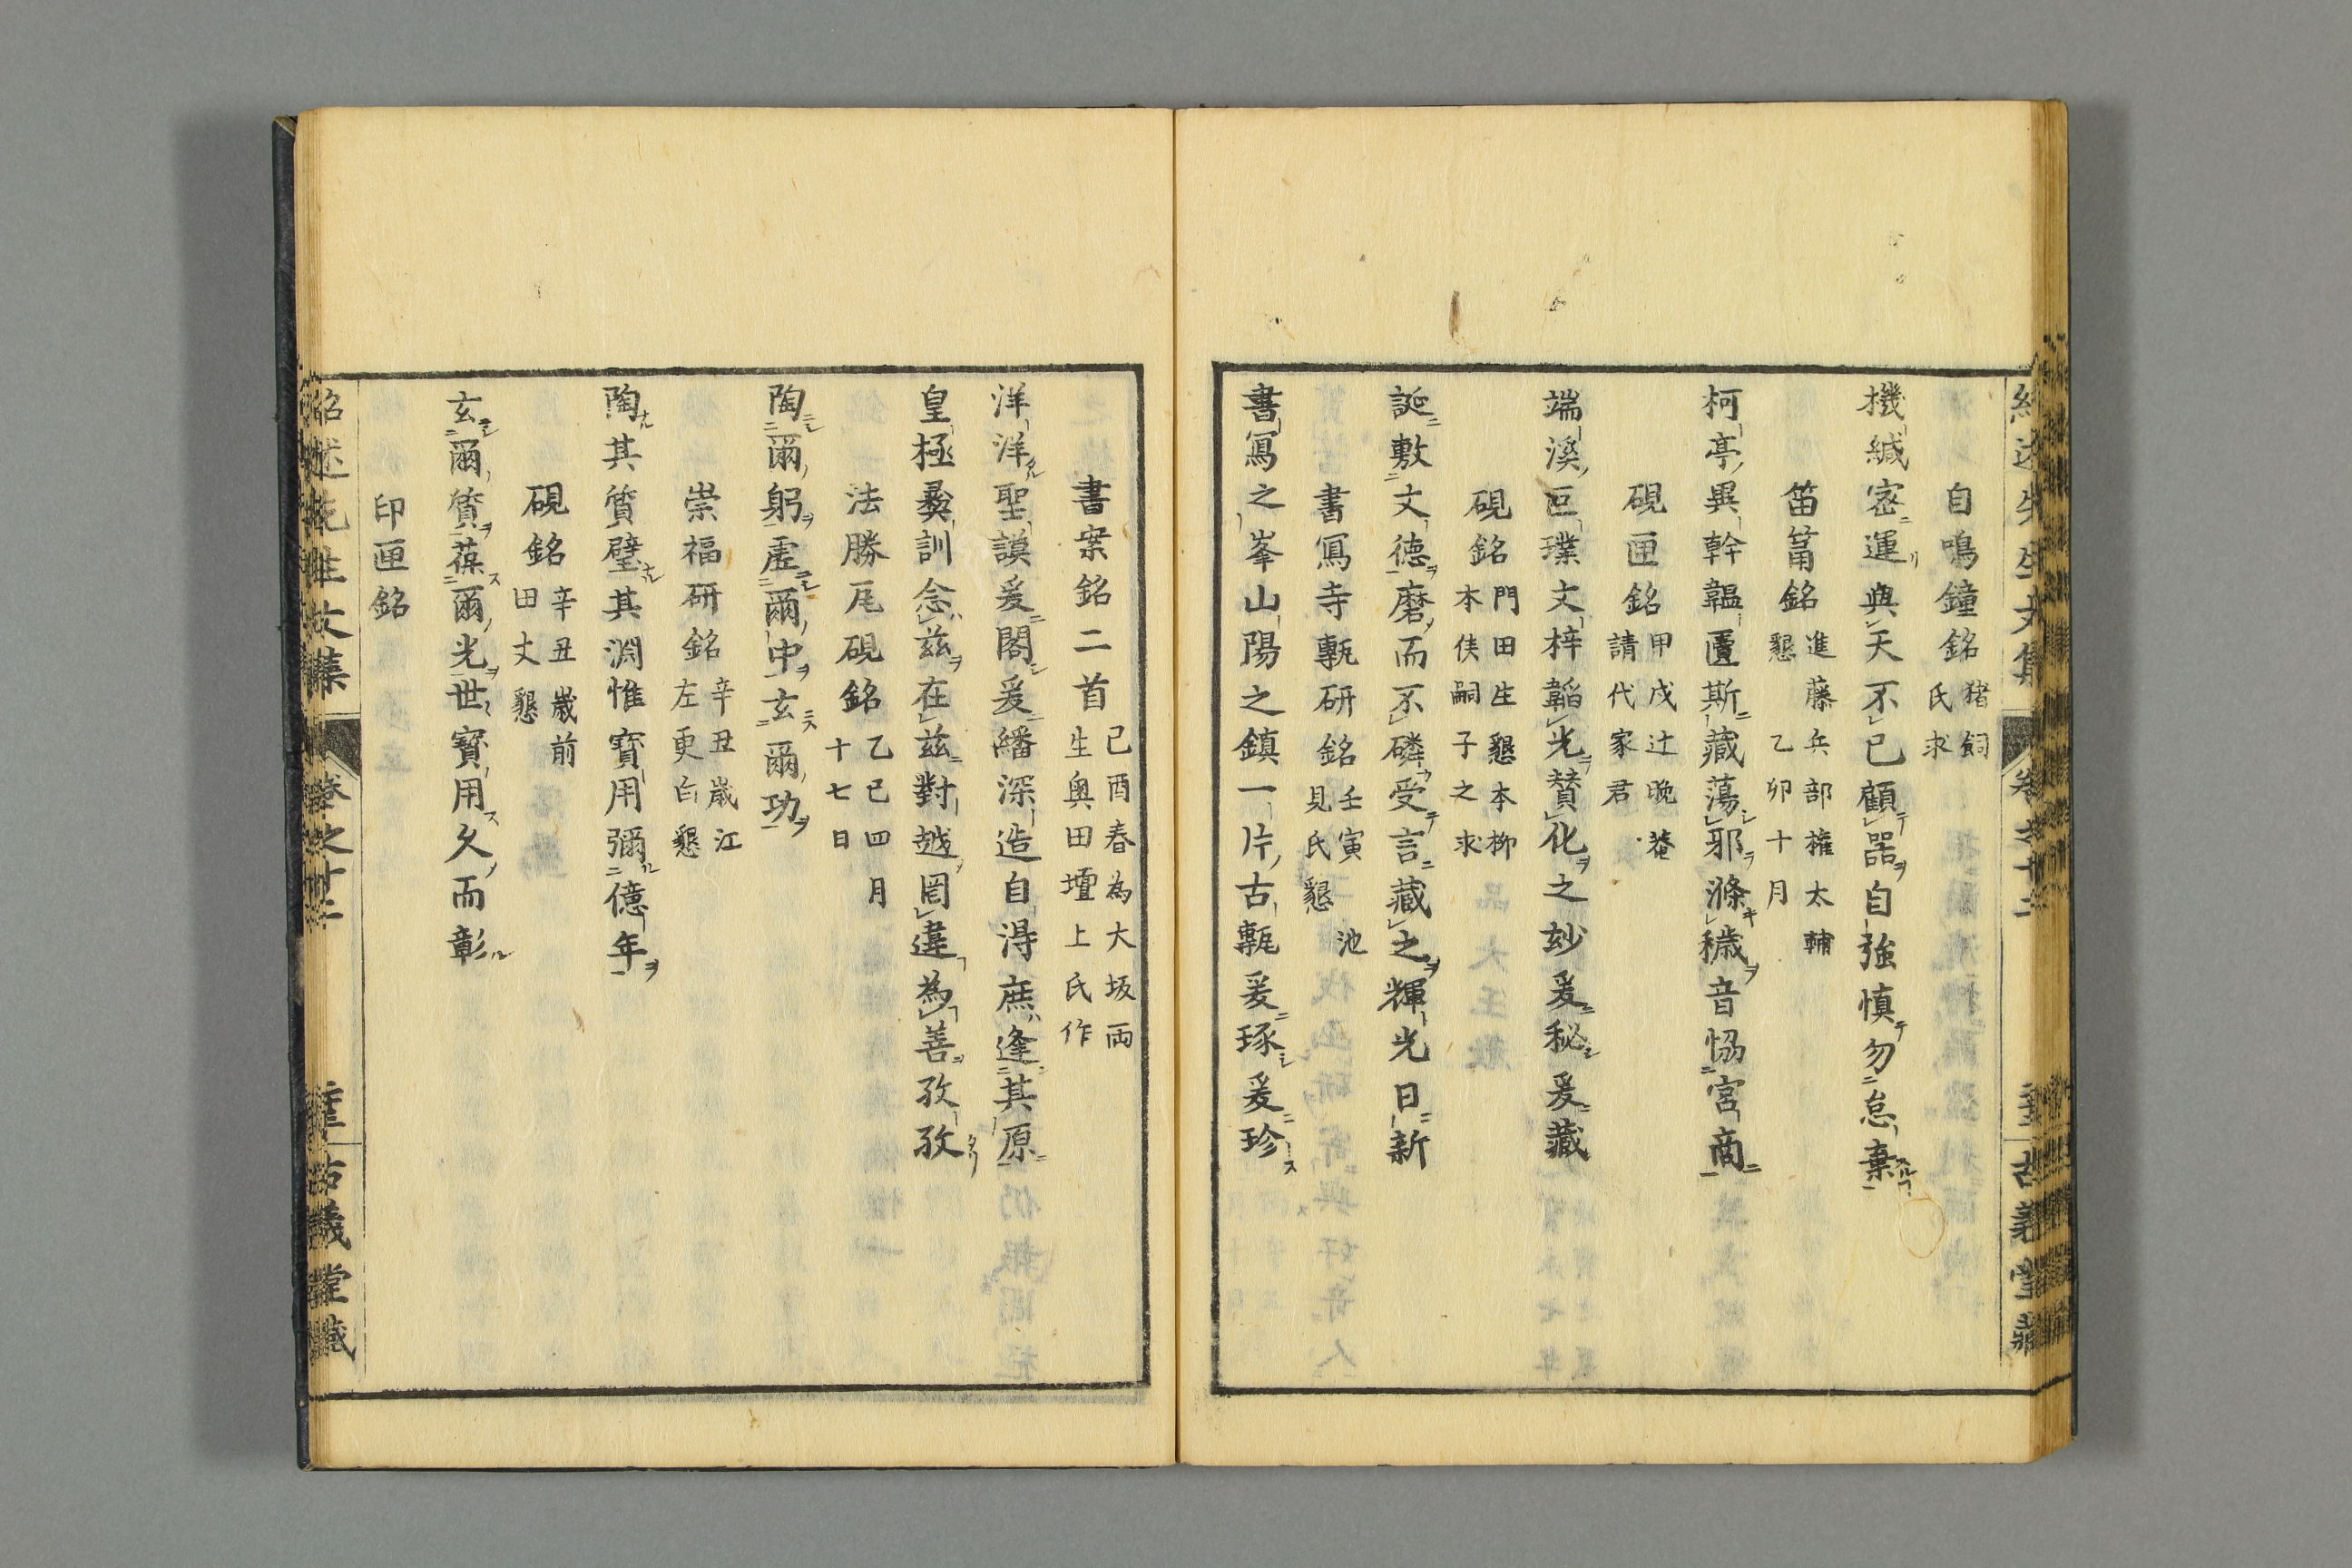 自鳴鐘銘 猪飼氏求
機緘密運與天不已顧器自強慎勿怠棄
笛筩銘 進藤兵部権太輔懇乙卯十月
柯亭異幹韞匵斯藏蕩邪滌穢音恊宮商
硯匣銘 甲戌辻晩菴請代家君
端溪巨璞文梓韜光賛化之玅爰秘爰藏
硯銘 門田生懇本柳本佚嗣子之求
誕敷文德磨而不磷受言藏之輝光日新
書寫寺甎研銘 壬寅池見氏懇
書寫之峯山陽之鎮一片古甎爰琢爰珍
書案銘二首 己酉春為大坂両生奥田壇上氏作
洋洋聖謨爰閣爰繙深造自得庶逢其原
皇極彜訓念茲在茲對越罔違為善孜孜
法勝尾硯銘 乙巳四月十七日
陶爾躬虛爾中玄爾功
崇福研銘 辛丑歲江左更白懇
陶其質璧其淵惟寳用彌億年
硯銘 辛丑歲前田丈懇
玄爾質葆爾光世寳用久而彰
印匣銘
紹述先生文集 卷之十二 古義堂藏